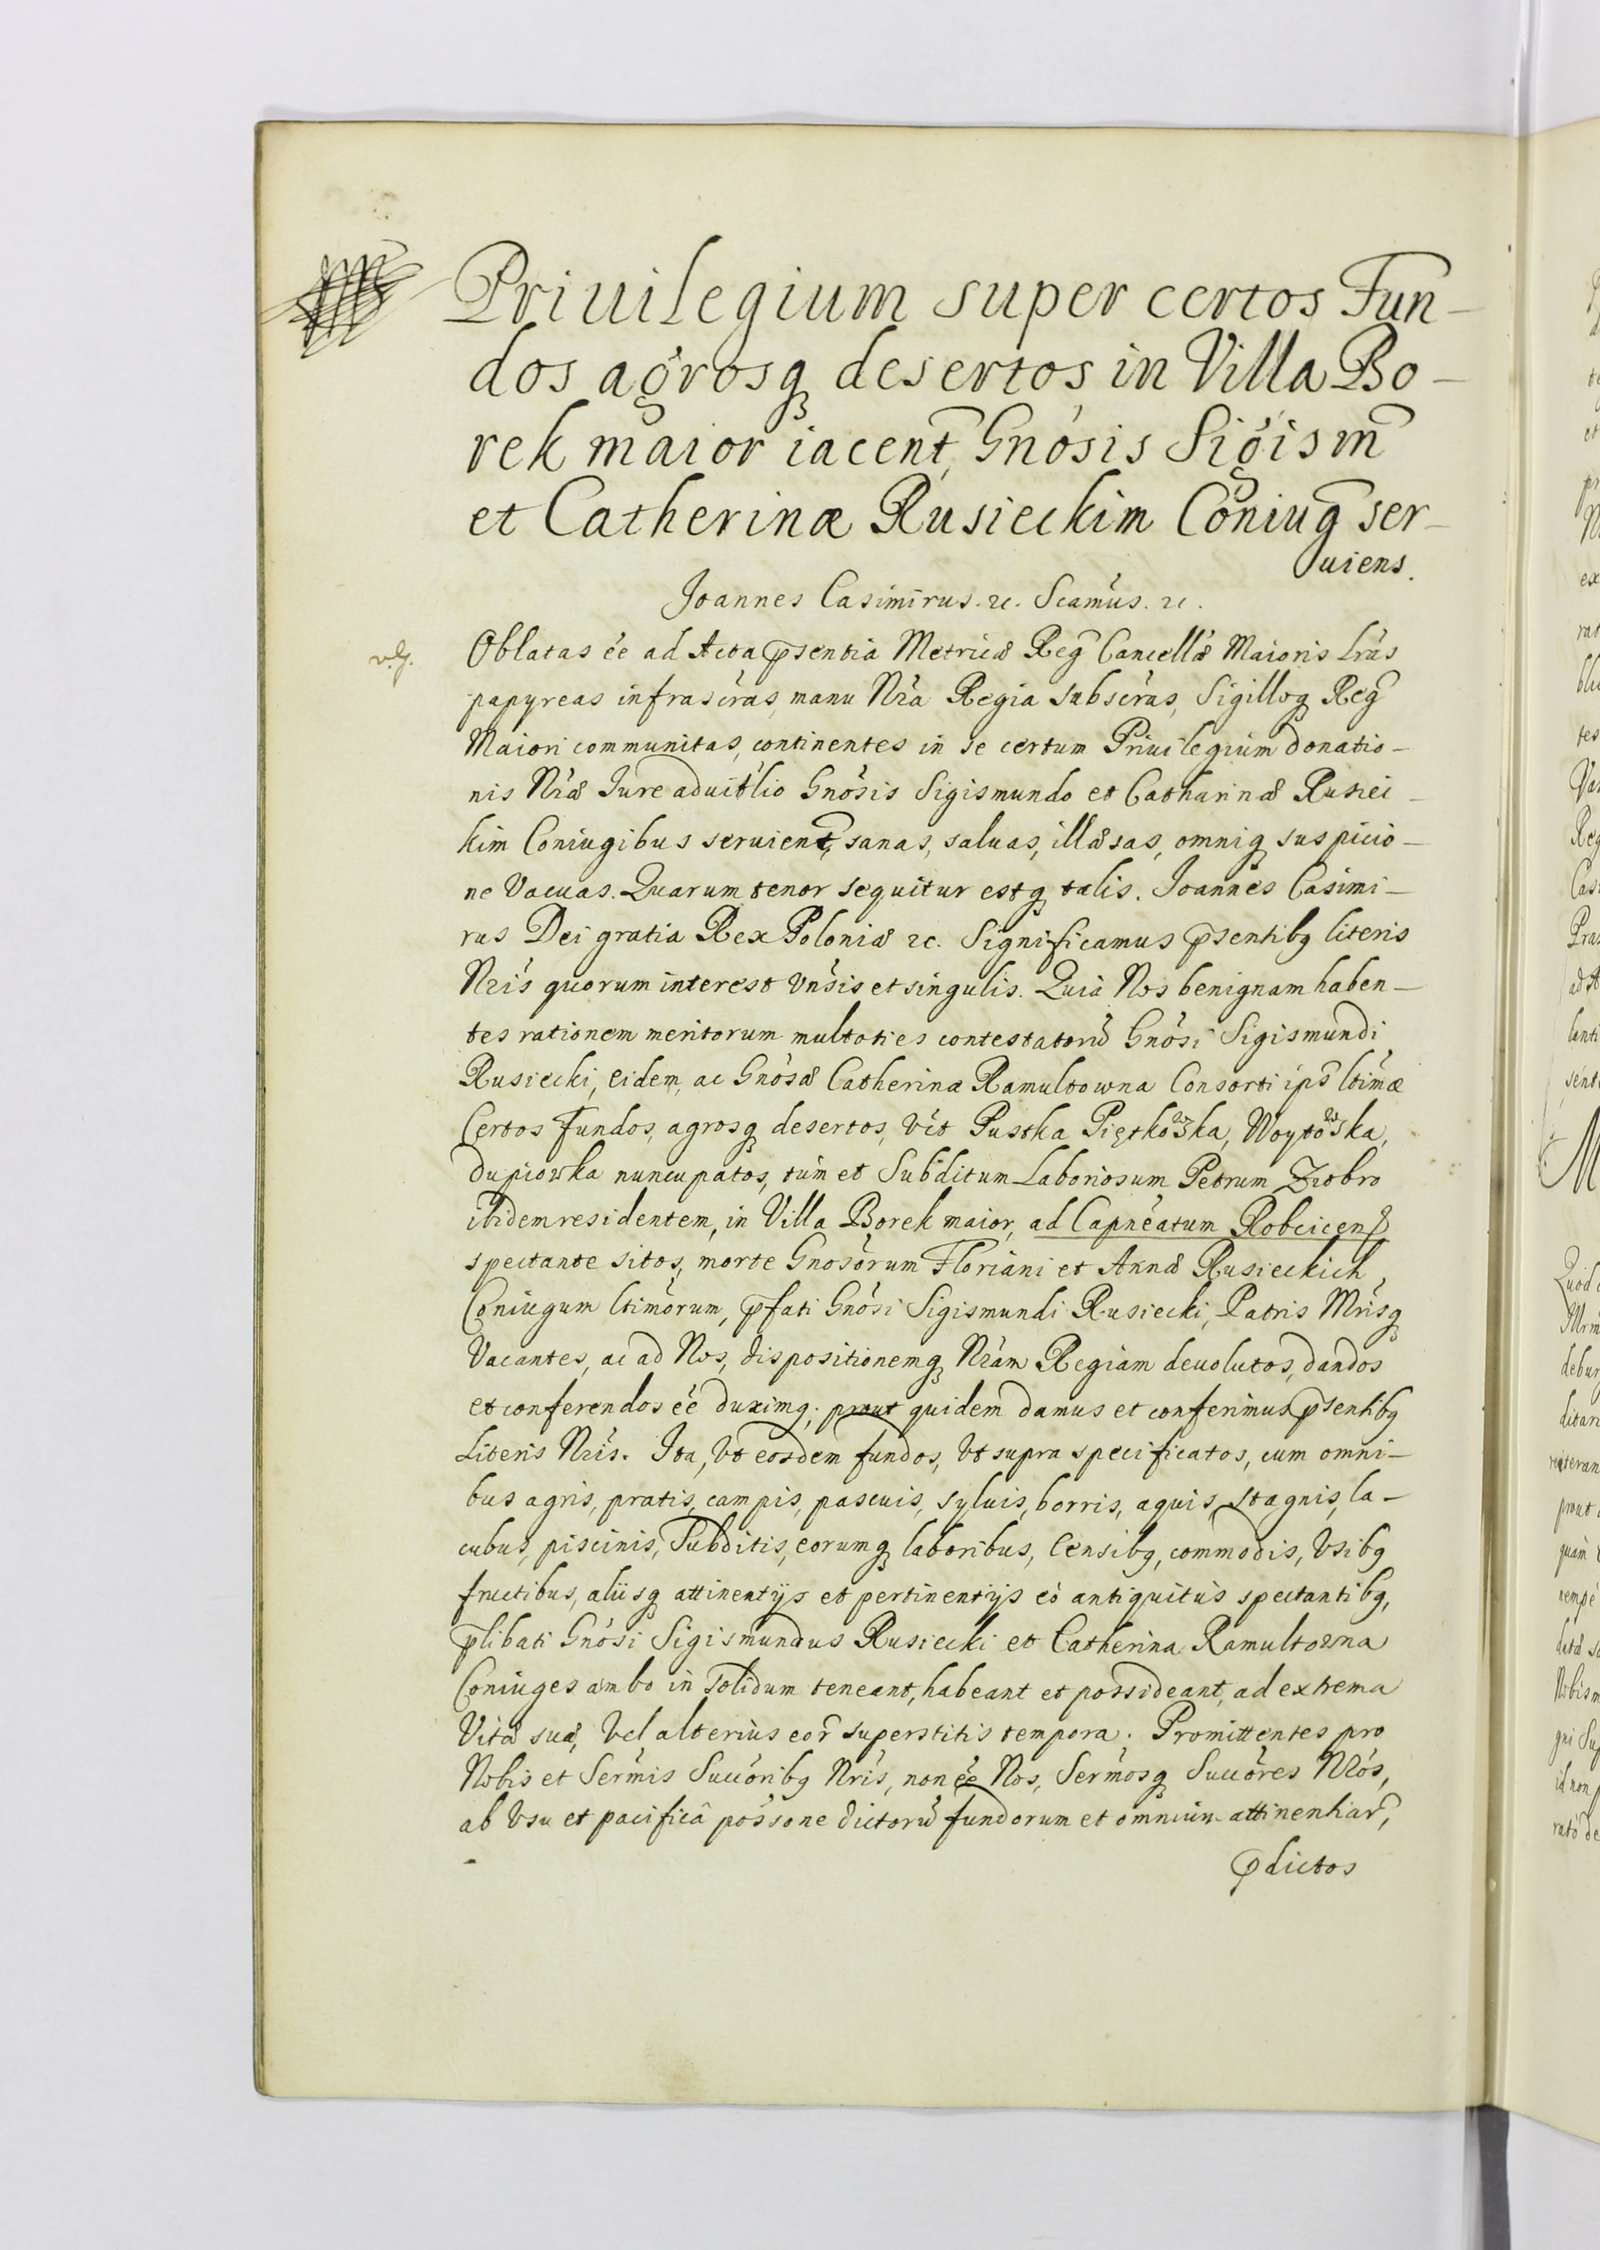 Priuilegium super certos Fun-
dos agrosq desertos in Villa Bo-
rek maior iacent, Gnosis Sigism
et Catherinæ Rusieckim Coniug ser-
uiens.
Joannes Casimirus. zc. Scamus. zc.
Oblatas ée ad Acta psentia Metricæ Reg Cancellæ Maioris Lras
papyreas infrascras, manu Nra Regia subscras, Sigilloq Reg
Maiori communitas, continentes in se certum Priuilegium donatio-
nis Nræ Iure aduitlio Gnosis Sigismundo et Catharinæ Rusiec-
kim Coniugibus seruient, sanas, saluas, illæsas, omniq suspicio-
ne Vacuas. Quarum tenor sequitur estq talis. Joannes Casimi-
rus Dei gratia Rex Poloniæ zc. Significamus psentibq literis
Nris quorum interest Vnsis et singulis. Quia Nos benignam haben-
tes rationem meritorum multoties contestatorũ Gnosi Sigismundi
Rusiecki, eidem, ac Gnosæ Catherinæ Ramultowna Consorti ips ltimæ
Certos Fundos, agrosq desertos, Vit Pustka Piętkowska, Woytowska,
dupiowka nuncupatos, tum et Subditum Laboriosum Petrum Ziobro
ibidem residentem, in Villa Borek maior, ad Capneatum Robcicens
spectante sitos, morte Gnosorum Floriani et Annæ Rusieckich
Coniugum ltimorum, pfati Gnosi Sigismundi Rusiecki, Patris Mrisq
Vacantes, ac ad Nos, dispositionemq Nram Regiam deuolutos, dandos
et conferendos ée duximq; prout quidem damus et conferimus psentibq
Literis Nris. Ita, Vt eosdem fundos, Vt supra specificatos, cum omni-
bus agris, pratis, campis, pascuis, syluis, borris, aquis, stagnis, la-
cubus, piscinis, Subditis, eorumq laboribus, Censibq, commodis, Vsibq
fructibus, aliisq attinentijs et pertinentijs eò antiquitùs spectantibq,
plibati Gnosi Sigismundus Rusiecki et Catherina Ramultowna
Coniuges ambo in solidum teneant, habeant et possideant, ad extrema
Vitæ suæ, Vel alterius eor superstitis tempora. Promittentes pro
Nobis et Sermis Succoribq Nris, non ée Nos, Sermosq Succores Nros,
ab Vsu et pacificâ possone dictorũ fundorum et omnium attinentiar,
pdictos